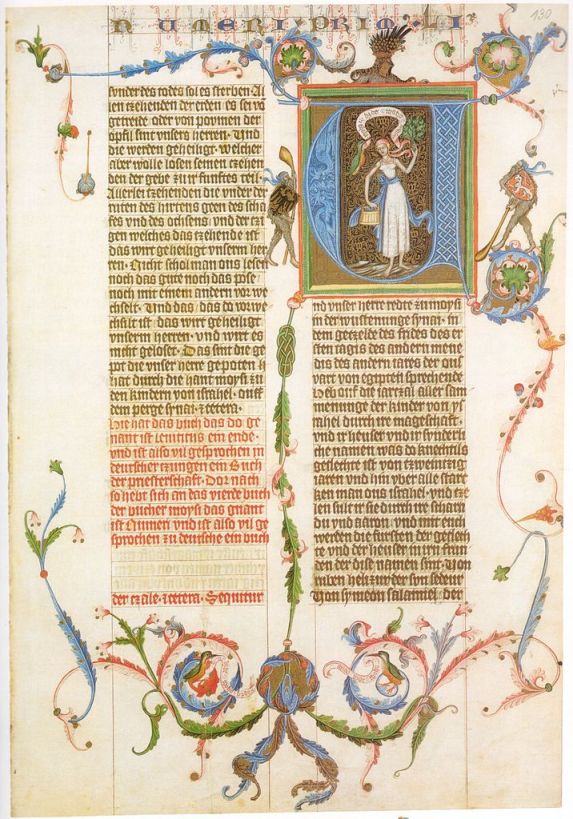 NUMERI PRIMI LI
130
sunder des todes sol es sterben Al
len czehenden der erden es sei vo
getreide oder von povmen der
opfil sint vnsers herren. Vnd
die werden geheiligt. Welcher
aber wolle losen seinen czehen
den der gebe zu ir funftes teil.
Allerlei czehenden die vnder der
ruten des hirtens geen des scha
fes vnd des ochsens. vnd der czi
gen welches das czehende ist.
das wirt geheiligt vnserm her
ren. Nicht schol man ens lesen
noch das gute noch das pose
noch mit einem andern vor we
chselt. Vnd das das do vorwe
chselt ist. das wirt geheiligt
vnserm herren. vnd wirt es
nicht geloset. Das sint die ge
pot die vnser herre gepoten h
hat durch die hant moysi zu
den kindern von israhel. auff
dem perge synai. et cetera.
Hie hat das buch das do ge
nant ist leuiticus ein ende.
vnd ist also vil gesprochen in
deutscher czungen ein buch
der priesterschaft. Dor nach
so hebt sich an das vierde buch
der bucher moysi das gnant
ist Numeri vnd ist also vil ge
sprochen zu deutsche ein buch
der czale. et cetera. Sequitur
nd vnser herre redte zu moysi
in der wustenunge synai. in
dem geczelde des frides des er
sten tagis des andern mene
dis des andern iares der aus
vart von egypten sprechende
Heb ouf die iarczal aller sam
menunge der kinder von ys
rahel durch ire mageschaft.
vnd ir heuser vnd ir sundern
che namen. was do knechtlichs
geslechte ist von czweinczig
iaren vnd hin vber alle starke
czen man ons israhel. vnd cze
len sult ir sie durch ire scharn
du vnd aaron. vnd mit euch
werden die fursten der geslech
te vnd der heuser in iren frun
den der dise namen sint. Von
ruben helizur der son sedeur
Von symeon salamiel. der